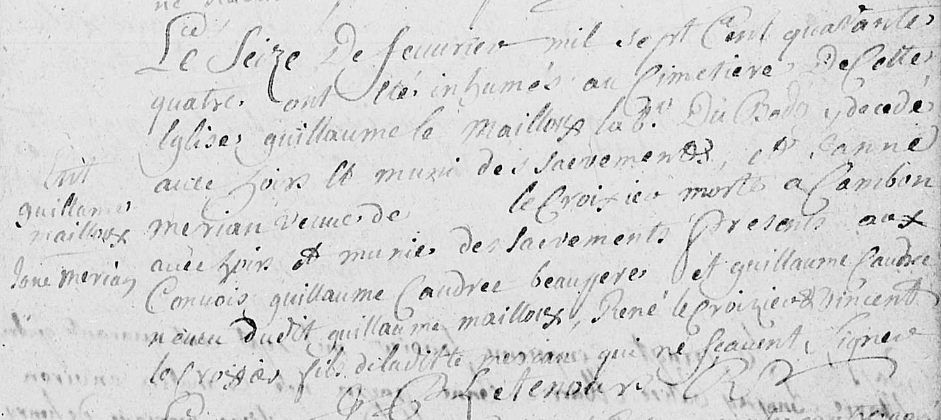 Le seize De fevurier mil sept Cent quarante
quatre ont été inhumés au Cimetiere De Cette
Eglise guillaume le mailloux lab.r Du Bods y decedé
avec hoirs et muni des sacrements, et Janne
merian veuve de le Croixier morte a Cambon
avec hoirs et munie des sacrements presents aux
Convois guillaume Caudree beaupere et guillaume Caudree
neveu dudit guillaume mailloux, René le Croizier et Vincent
le croixier fils de ladiste merian qui ne scavent signer
guillaume
mailloux
Jane merian